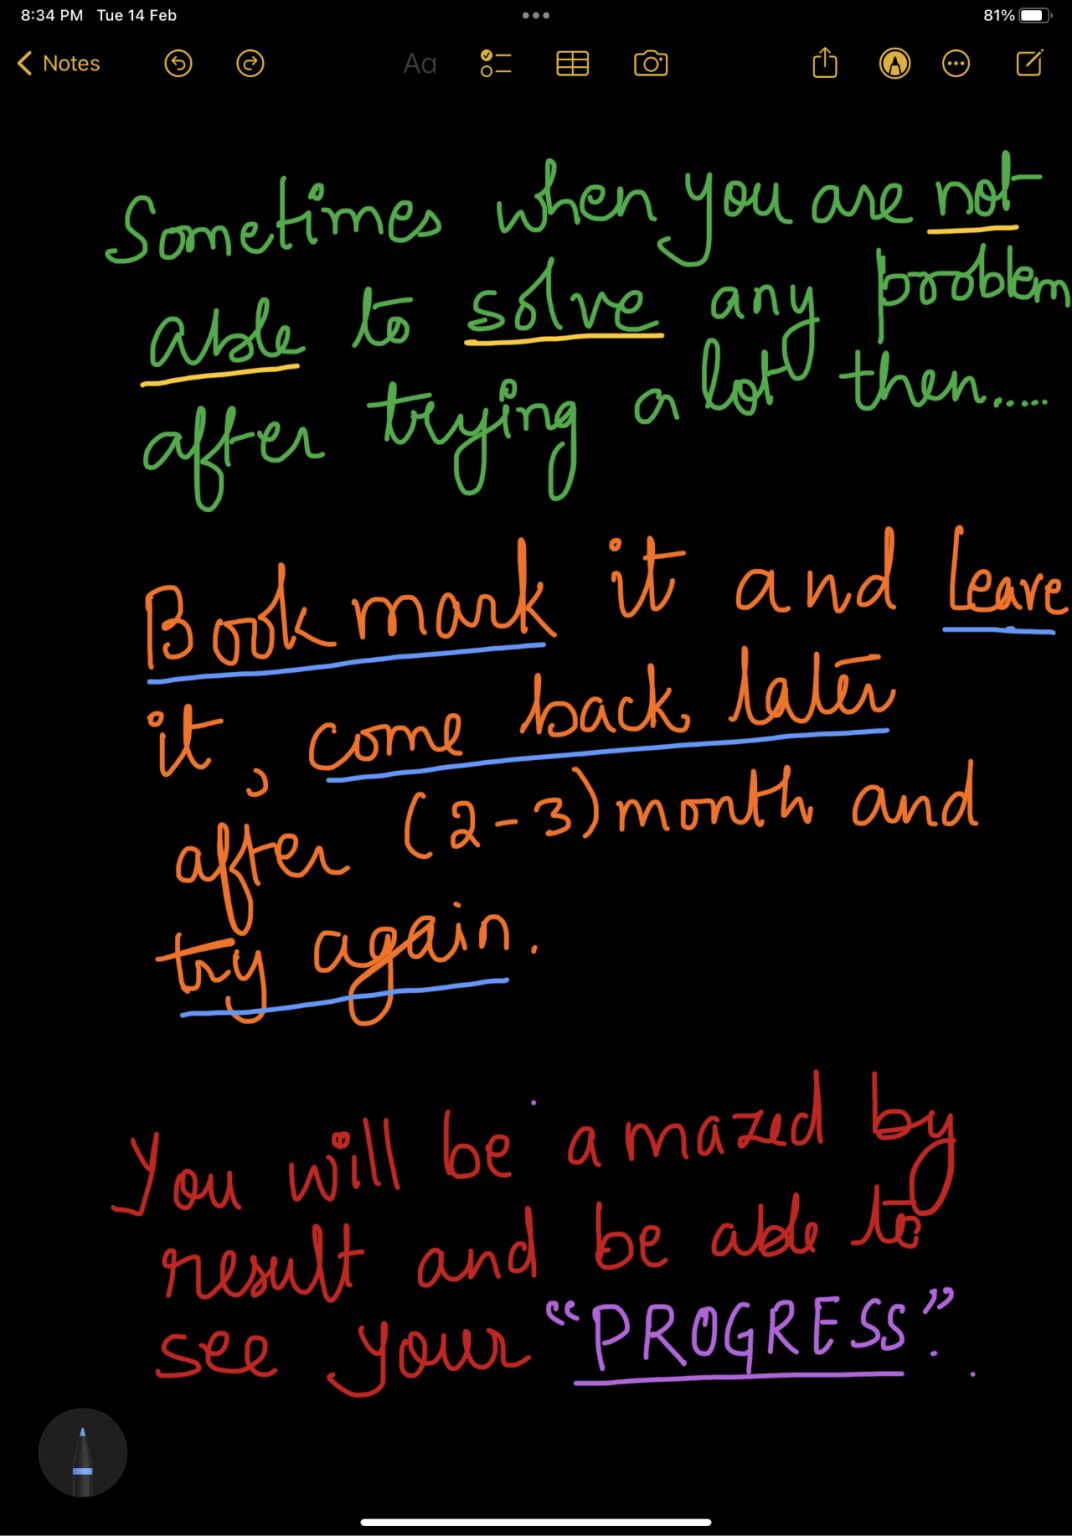 8:34 PM Tue 14 Feb 81%
Notes Aa
Sometimes when you are not
able to solve any problem
after trying a lot then.....
Bookmark it and leave
it, come back later
after (2-3) month and
try again.
You will be amazed by
result and be able to
see your "PROGRESS".